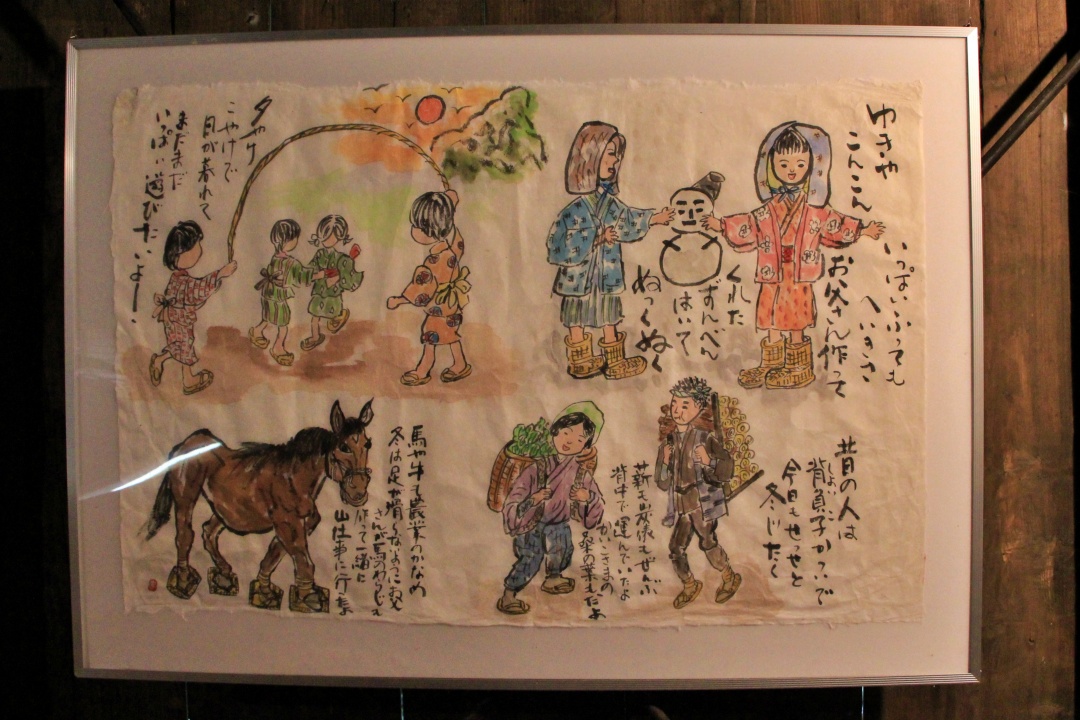 ゆきや
こんこん
いっぱいふっても
へいきさ
お父さん作って
くれた
ずんべん
はいて
ぬっくぬく
夕やけ
こやけで
日が暮れて
まだまだ
いっぱい遊びたいよー
昔の人は
背負子かついで
しょい
今日もせっせと
冬じたく
薪も炭俵もぜんぶ
背中で運んでいたよ
かごの中の
の葉もだよ
馬や牛は農業のかなめ
冬は足が滑らないようにお父
さんが馬のわらじを
作って一緒に
山仕事に行った